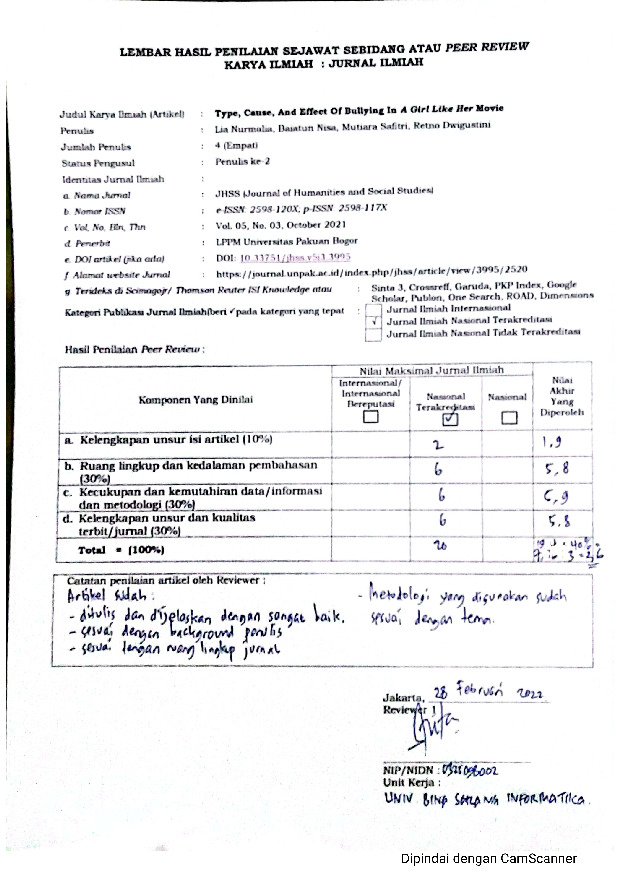 LEMBAR HASIL PENILAIAN SEJAWAT SEBIDANG ATAU PEER REVIEW
KARYA ILMIAH : JURNAL ILMIAH
Judul Karya Ilmiah (Artikel) : Type, Cause, And Effect Of Bullying In A Girl Like Her Movie
Penulis : Lia Nurmalia, Baiatun Nisa, Mutiara Safitri, Retno Dwigustini
Jumlah Penulis : 4 (Empat)
Status Pengusul : Penulis ke-2
Identitas Jurnal Ilmiah :
a. Nama Jurnal : JHSS (Journal of Humanities and Social Studies)
b. Nomor ISSN : e-ISSN: 2598-120X, p-ISSN: 2598-117X
c. Vol, No. Bln, Thn : Vol. 05, No. 03, October 2021
d. Penerbit : LPPM Universitas Pakuan Bogor
e. DOI artikel (jika ada) : DOI: 10.33751/jhss.v5i3.3995
f Alamat website Jurnal : https://journal.unpak.ac.id/index.php/jhss/article/view/3995/2520
g Terideks di Scimagojr/ Thomson Reuter ISI Knowledge atau : Sinta 3, Crossreff, Garuda, PKP Index, Google
Scholar, Publon, One Search, ROAD, Dimensions
Kategori Publikasi Jurnal Ilmiah(beri ✓ pada kategori yang tepat : Jurnal Ilmiah Internasional
√ Jurnal Ilmiah Nasional Terakreditasi
Jurnal Ilmiah Nasional Tidak Terakreditasi
Hasil Penilaian Peer Review :
Komponen Yang Dinilai
Nilai Maksimal Jurnal Ilmiah
Internasional/
Internasional
Bereputasi
Nasional
Terakreditasi
✓
Nasional
Nilai
Akhir
Yang
Diperoleh
a. Kelengkapan unsur isi artikel (10%) 2 1,9
b. Ruang lingkup dan kedalaman pembahasan
(30%) 6 5,8
c. Kecukupan dan kemutahiran data/informasi
dan metodologi (30%) 6 5,9
d. Kelengkapan unsur dan kualitas
terbit/jurnal (30%) 6 5,8
Total = (100%) 20
Catatan penilaian artikel oleh Reviewer :
Artikel sudah :
- ditulis dan dijelaskan dengan sangat baik.
- sesuai dengan background penulis
- sesuai dengan ruang lingkup jurnal
- Metodologi yang digunakan sudah
sesuai dengan tema.
Jakarta, 28 Februari 2022
Reviewer 1
NIP/NIDN :
Unit Kerja :
UNIV BINA SARANA INFORMATIKA.
Dipindai dengan CamScanner